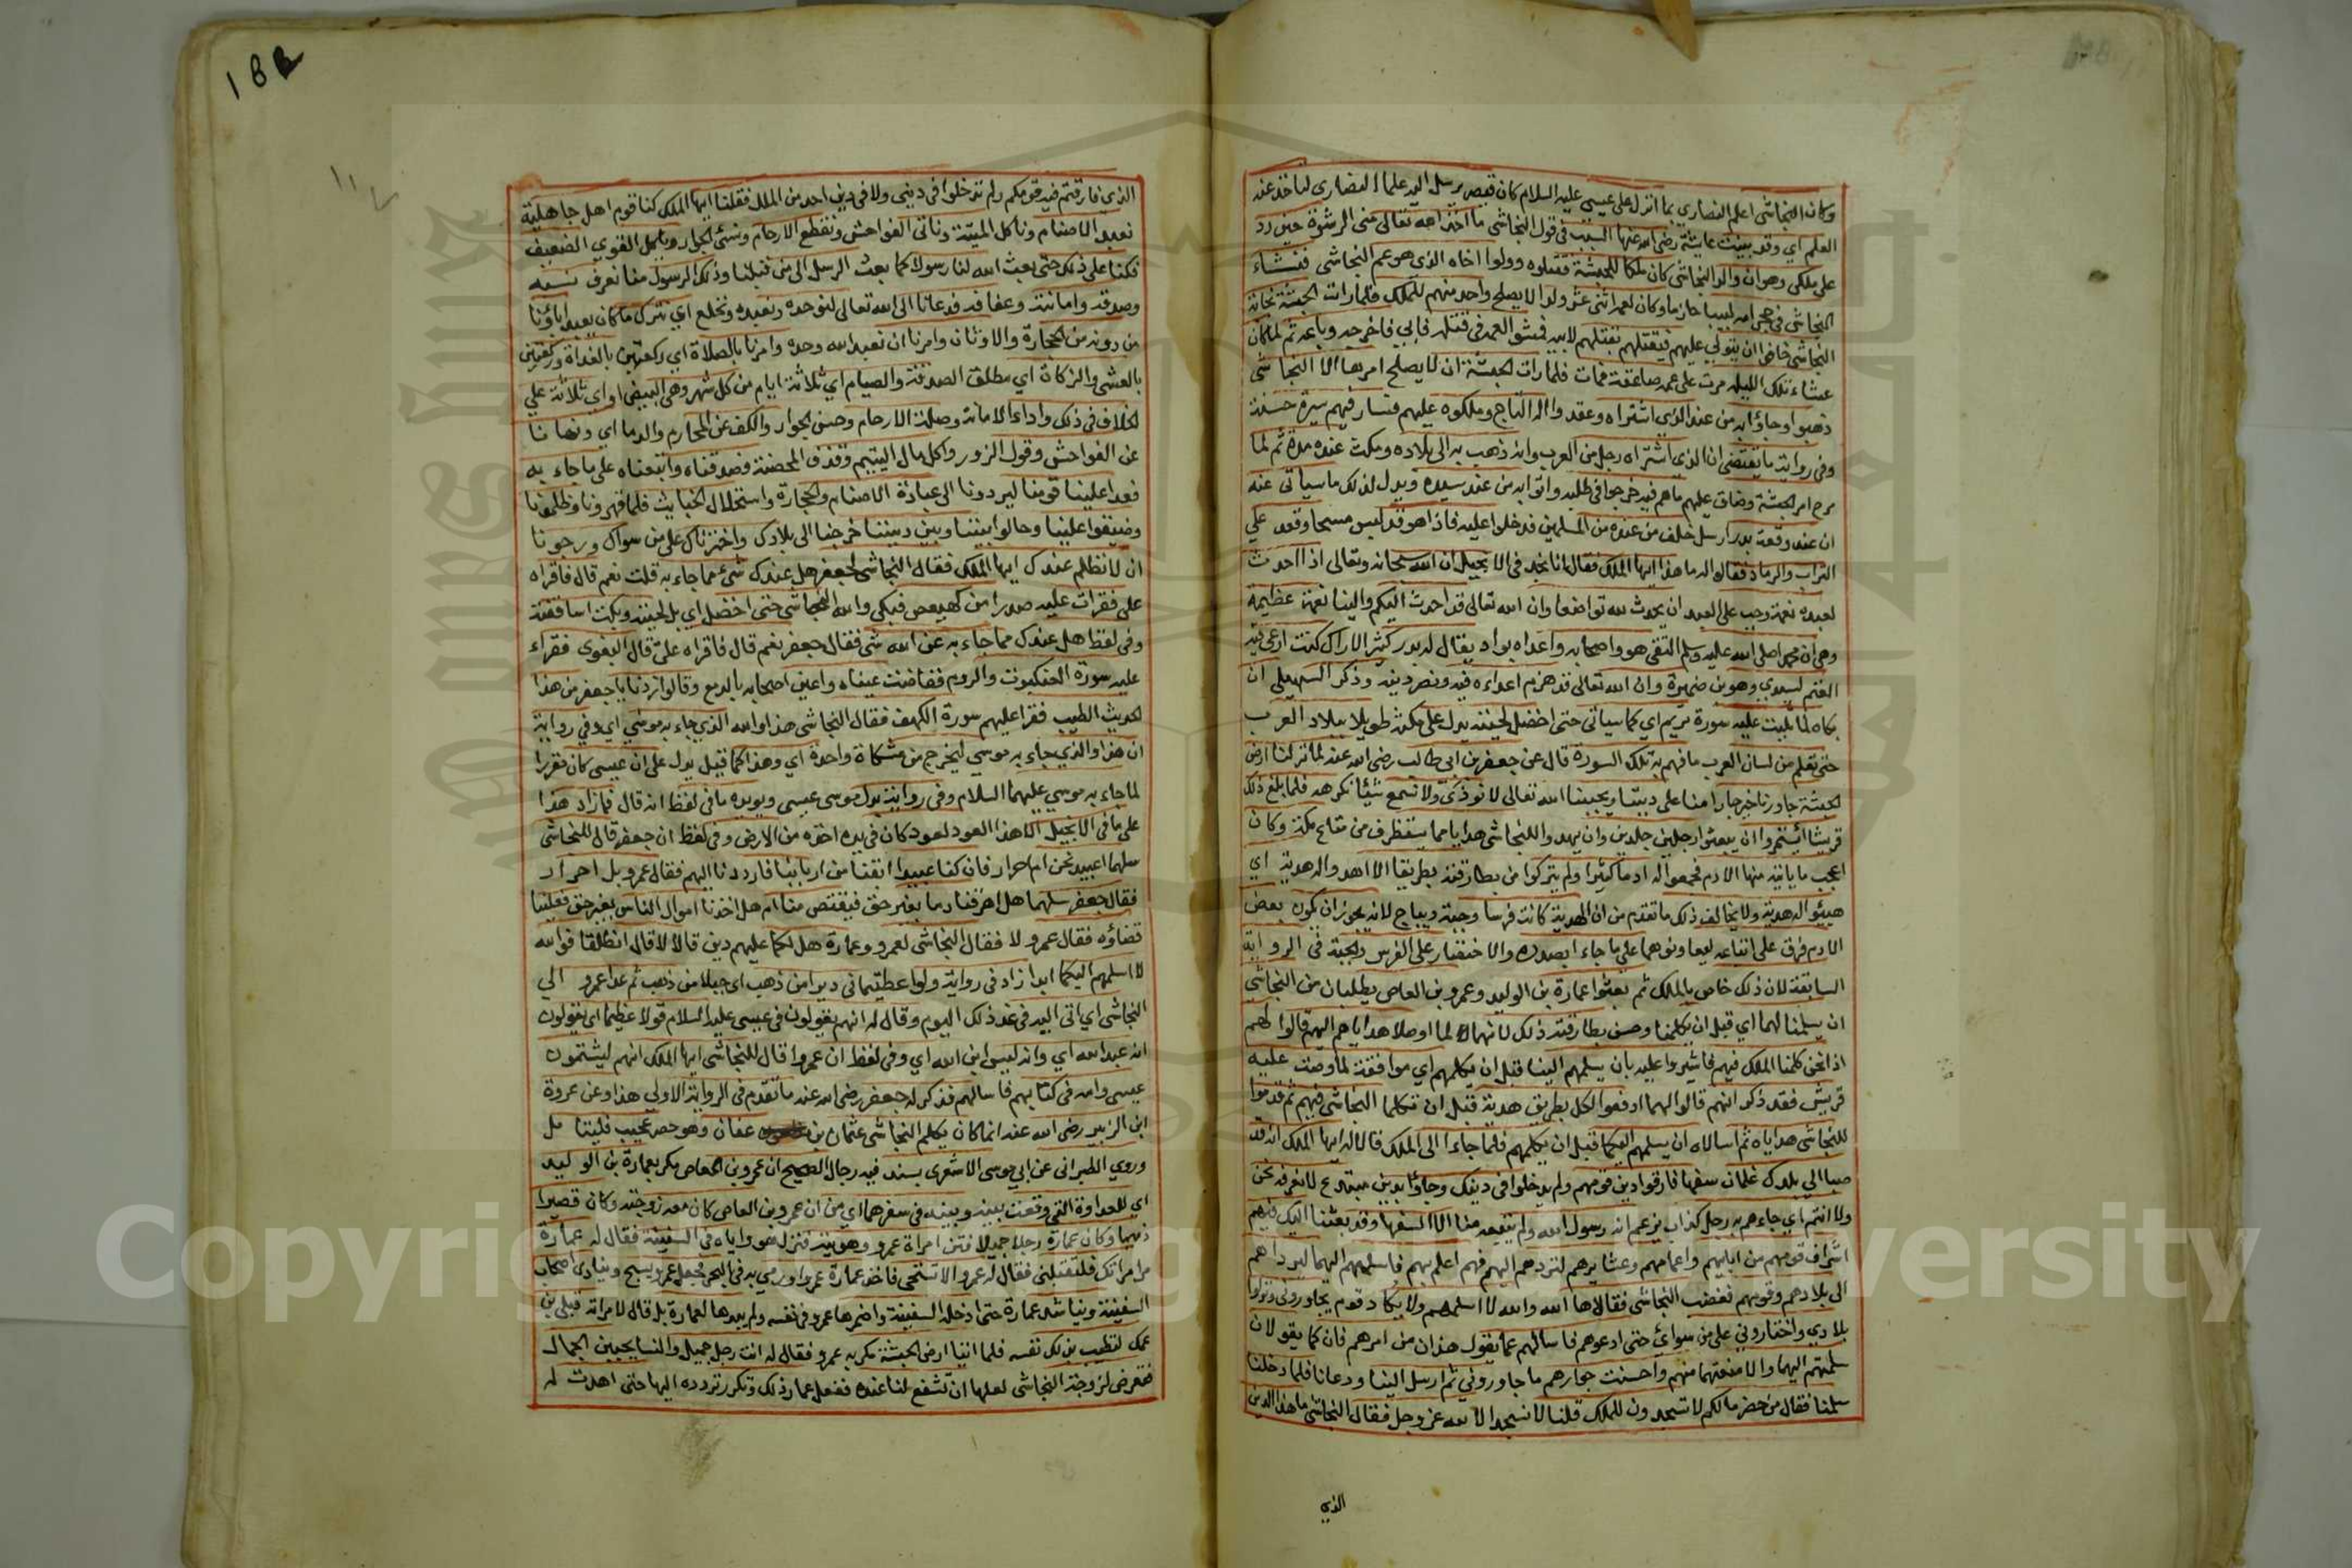 وكان النجاشى اعلم النصارى بما انزل على عيسى عليه السلام كان قيصر يرسل اليه علماء النصارى لتاخذ عنه
العلم اى وقد بينت عايشة رضى الله عنها السبب فى قول النجاشى ما اخذ الله تعالى منى الرشوة حين رد
على ملكى وهو ان والد النجاشى كان ملكا للحبشة فقتلوه وولوا اخاه الذى هو عم النجاشى فنشاء
النجاشى فى حجر عمه لبيبا حازما وكان لعمه اثنى عشر ولدا لا يصلح واحد منهم للملك فلما رات الحبشة نجابة
النجاشى خافوا ان يتولى عليهم فيقتلهم بقتلهم لابيه فمشوا لعمه فى قتله فابى فاخرجه وباعه ثم لما كان
عشاء تلك الليلة مرت على عمه صاعقة فمات فلما رات الحبشة ان لا يصلح امرها الا النجاشى
ذهبوا وجاؤا به من عند الذى اشتراه وعقدوا له التاج وملكوه عليهم فسار فيهم سيرة حسنة
وفى رواية ما يقتضى ان الذى اشتراه رجل من العرب وانه ذهب به الى بلاده ومكث عنده مدة ثم لما
مرج امر الحبشة وضاق عليهم ما هم فيه خرجوا فى طلبه واتوا به من عند سيده ويدل لذلك ما سياتى عنه
ان عند وقعة بدر ارسل خلف من عنده من المسلمين فدخلوا عليه فاذا هو قد لبس مسحا وقعد على
التراب والرماد فقالوا له ما هذا ايها الملك فقال انا نجد فى الانجيل ان الله سبحانه وتعالى اذا احدث
لعبده نعمة وجب على العبد ان يحدث لله تواضعا وان الله تعالى قد احدث اليكم والينا نعمة عظيمة
وهى ان محمدا صلى الله عليه وسلم التقى هو واصحابه واعداه بواد يقال له بدر كثير الاراك كنت ارعى فيه
الغنم لسيدى وهو من ضمرة وان الله تعالى قد هزم اعداءه فيه ونصر دينه وذكر السهيلى ان
بكاه لما تليت عليه سورة مريم اى كما سياتى حتى اخضل لحيته يدل على مكثه طويلا ببلاد العرب
حتى تعلم من لسان العرب ما فهم به تلك السورة قال عن جعفر بن ابى طالب رضى الله عنه لما نزلنا ارض
الحبشة جاورنا خير جار امنا على ديننا وعبدنا الله تعالى لا نوذى ولا نسمع شيئا نكرهه فلما بلغ ذلك
قريشا ائتمروا ان يبعثوا رجلين جلدين وان يهدوا للنجاشى هدايا مما يستظرف من متاع مكة وكان
اعجب ما ياتيه منها الادم فجمعوا له ادما كثيرا ولم يتركوا من بطارقته بطريقا الا اهدوا له هدية اى
هيئوا له هدية ولا يخالف ذلك ما تقدم من ان الهدية كانت فرسا وجبة ديباج لانه يجوز ان يكون بعض
الادم فرق على اتباعه ليعاونوهما على ما جاءا بصدده والاختصار على الفرس والجبة فى الرواية
السابقة لان ذلك خاص بالملك ثم بعثوا عمارة بن الوليد وعمرو بن العاص يطلبان من النجاشى
ان يسلمنا لهما اى قبل ان يكلمنا وحسن بطارقته ذلك لانهما لما اوصلا هداياهم اليهم قالوا لهم
اذا نحن كلمنا الملك فيهم فاشيروا عليه بان يسلمهم الينا قبل ان يكلمهم اى موافقة لما وصت عليه
قريش فقد ذكر انهم قالوا لهما ادفعوا لكل بطريق هدية قبل ان تكلما النجاشى فيهم ثم قدموا
للنجاشى هداياه ثم اسالاه ان يسلمهم اليكما قبل ان يكلمهم فلما جاءا الى الملك قالا له ايها الملك انه قد
صبا الى بلدك غلمان سفها فارقوا دين قومهم ولم يدخلوا فى دينك وجاؤا بدين مبتدع لا نعرفه نحن
ولا انتم اى جاءهم به رجل كذاب يزعم انه رسول الله ولم يتبعه منا الا السفها وقد بعثنا اليك فيهم
اشراف قومهم من ابايهم واعمامهم وعشايرهم لتردهم اليهم فهم اعلم بهم فاسلمهم اليهما ليرداهم
الى بلادهم وقومهم فغضب النجاشى فقال لاها الله والله لا اسلمهم ولا يكاد قوم يجاورونى ونزلوا
بلادى واختارونى على من سواى حتى ادعوهم فاسالهم عما يقول هذان من امرهم فان كما يقولان
سلمتهم اليهما والا منعتهما منهم واحسنت جوارهم ما جاورونى ثم ارسل الينا ودعانا فلما دخلنا
سلمنا فقال من حضر ما لكم لا تسجدون للملك قلنا لا نسجد الا لله عز وجل فقال النجاشى ما هذا الدين
الذى
188
الذى فارقتم فيه قومكم ولم تدخلوا فى دينى ولا فى دين احد من الملل فقلنا ايها الملك كنا قوم اهل جاهلية
نعبد الاصنام وناكل الميتة وناتى الفواحش ونقطع الارحام ونسئ الجوار وياكل القوى الضعيف
فكنا على ذلك حتى بعث الله لنا رسولا كما بعث الرسل الى من قبلنا وذلك الرسول منا نعرف نسبه
وصدقه وامانته وعفافه فدعانا الى الله تعالى لنوحده ونعبده ونخلع اى نترك ما كان يعبد اباؤنا
من دونه من الحجارة والاوثان وامرنا ان نعبد الله وحده وامرنا بالصلاة اى ركعتين بالغداة وركعتين
بالعشى والزكاة اى مطلق الصدقة والصيام اى ثلاثة ايام من كل شهر وهى البيض او اى ثلاثة على
الخلاف فى ذلك واداء الامانة وصلة الارحام وحسن الجوار والكف عن المحارم والدما اى ونهانا
عن الفواحش وقول الزور واكل مال اليتيم وقذف المحصنة فصدقناه واتبعناه على ما جاء به
فعدا علينا قومنا ليردونا الى عبادة الاصنام والحجارة واستحلال الخبايث فلما قهرونا وظلمونا
وضيقوا علينا وحالوا بيننا وبين ديننا خرجنا الى بلادك واخترناك على من سواك ورجونا
ان لا نظلم عندك ايها الملك فقال النجاشى لجعفر هل عندك شئ مما جاء به قلت نعم قال فاقراه
على فقرات عليه صدرا من كهيعص فبكى والله النجاشى حتى اخضل اى بل لحيته وبكت اساقفته
وفى لفظ هل عندك مما جاء به عن الله شى فقال جعفر نعم قال فاقراه على قال البغوى فقراء
عليه سورة العنكبوت والروم ففاضت عيناه واعين اصحابه بالدمع وقالوا زدنا يا جعفر من هذا
الحديث الطيب فقرا عليهم سورة الكهف فقال النجاشى هذا والله الذى جاء به موسى اى وفى رواية
ان هذا والذى جاء به موسى ليخرج من مشكاة واحدة اى وهذا كما قيل يدل على ان عيسى كان مقررا
لما جاء به موسى عليهما السلام وفى رواية بدل موسى عيسى ويويده ما فى لفظ انه قال ما زاد هذا
على ما فى الانجيل الا هذا العود لعود كان فى يده اخذه من الارض وفى لفظ ان جعفر قال للنجاشى
سلهما اعبيد نحن ام احرار فان كنا عبيدا ابقنا من اربابنا فارددنا اليهم فقال عمرو بل احرار
فقال جعفر سلهما هل اهرقنا دما بغير حق فيقتص منا ام هل اخذنا اموال الناس بغير حق فعلينا
قضاؤه فقال عمرو لا فقال النجاشى لعمرو وعمارة هل لكما عليهم دين قالا لا قال انطلقا فوالله
لا اسلمهم اليكما ابدا زاد فى رواية ولو اعطيتمانى ديرا من ذهب اى جبلا من ذهب ثم غدا عمرو الى
النجاشى اى اتى اليه فى غد ذلك اليوم وقال له انهم يقولون فى عيسى عليه السلام قولا عظيما اى يقولون
انه عبد الله اى وانه ليس ابن الله اى وفى لفظ ان عمروا قال للنجاشى ايها الملك انهم ليشتمون
عيسى وامه فى كتابهم فاسالهم فذكر له جعفر رضى الله عنه ما تقدم فى الرواية الاولى هذا وعن عروة
ابن الزبير رضى الله عنه انما كان يكلم النجاشى عثمان بن عفان وهو حصر عجيب فليتامل
وروى الطبرانى عن ابى موسى الاشعرى بسند فيه رجال الصحيح ان عمرو بن العاص مكر بعمارة بن الوليد
اى للعداوة التى وقعت بينه وبينه فى سفرهما اى من ان عمرو بن العاص كان معه زوجته وكان قصيرا
دميما وكان عمارة رجلا جميلا فتن امراة عمرو وهويته فنزل هو واياه فى السفينة فقال له عمارة
مر امراتك فلتقبلنى فقال له عمرو الا تستحى فاخذ عمارة عمروا ورمى به فى البحر فجعل عمرو يسبح وينادى اصحاب
السفينة ويناشد عمارة حتى ادخله السفينة واضمرها عمرو فى نفسه ولم يبدها لعمارة بل قال لامراته قبلى بن
عمك لتطيب بذلك نفسه فلما اتيا ارض الحبشة مكر به عمرو فقال له انت رجل جميل والنسا يحببن الجمال
فتعرض لزوجة النجاشى لعلها ان تشفع لنا عنده ففعل عمارة ذلك وتكرر تردده اليها حتى اهدت له